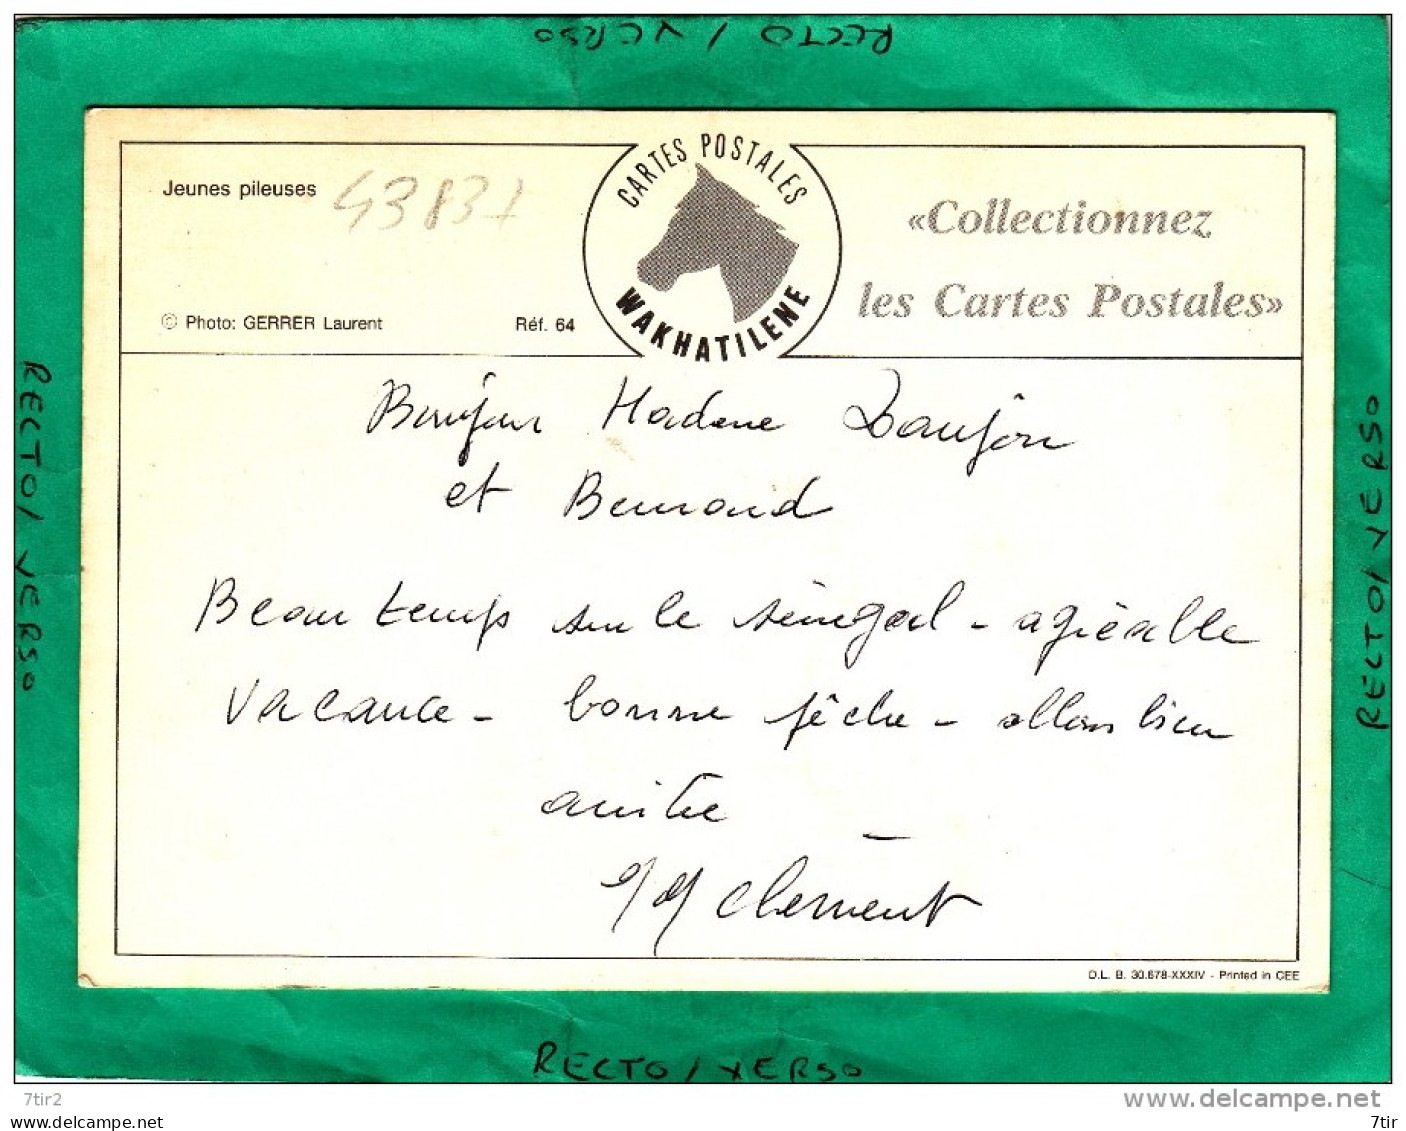 RECTO / VERSO
CARTES POSTALES
WAKHATILENE
Jeunes pileuses
43837
«Collectionnez
les Cartes Postales»
© Photo: GERRER Laurent
Réf. 64
Bonjour Madame Daujon
et Bernard
Beau temps sur le sénégal - agréable
vacance - bonne pêche - allons bien
amitié
Clement
D.L. B. 30.678-XXXIV - Printed in CEE
RECTO / VERSO
RECTO / VERSO
RECTO / VERSO
7tir2
www.delcampe.net
www.delcampe.net
7tir